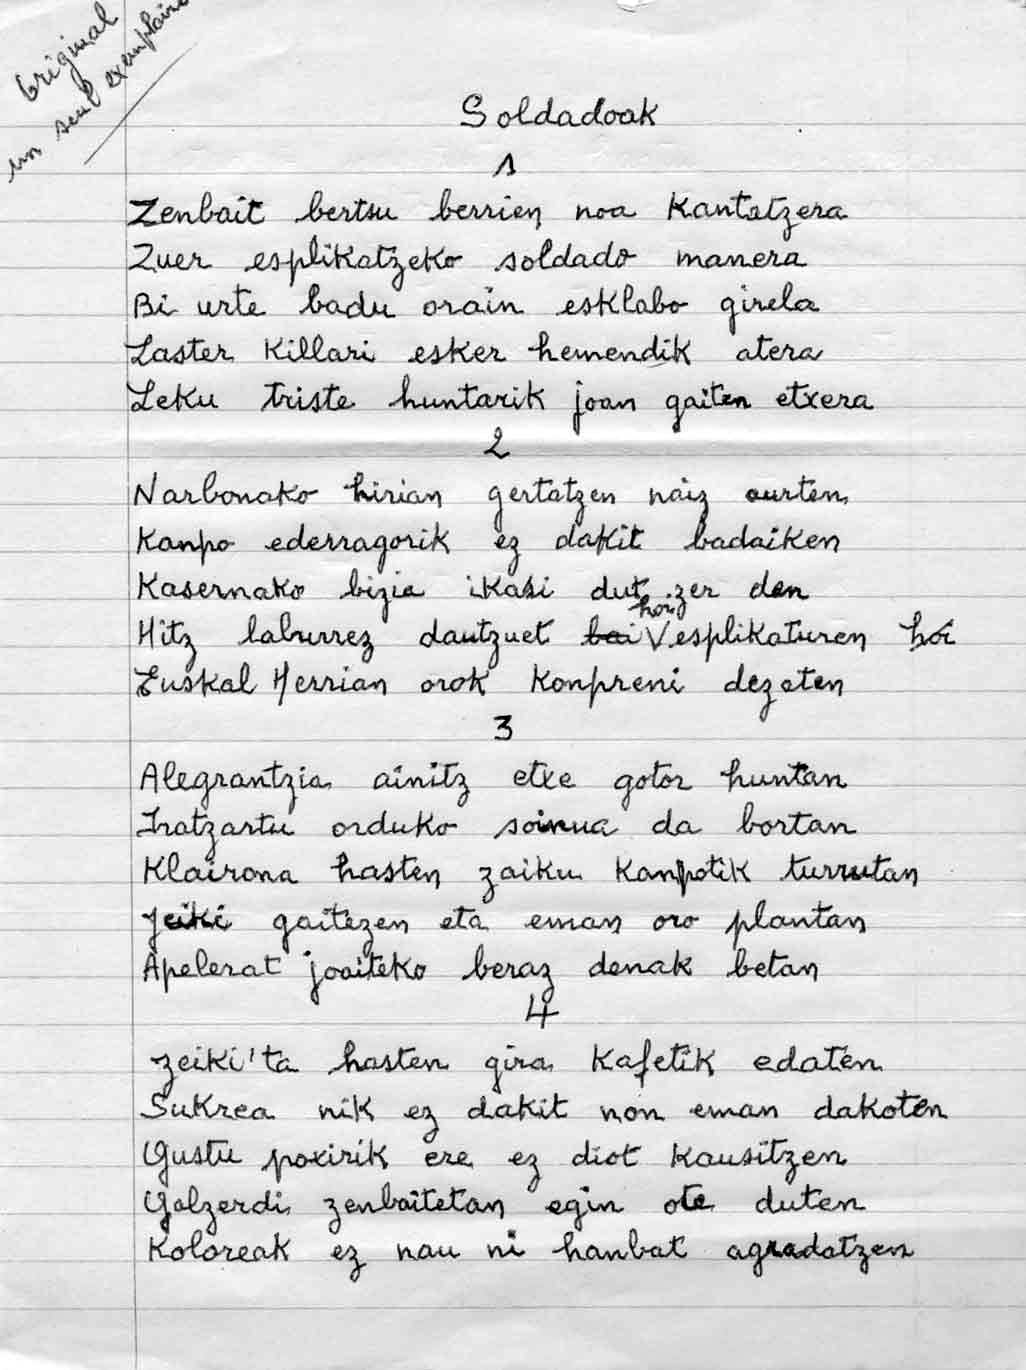 Original
un seul exemplaire
Soldadoak
1
Zenbait bertsu berrien noa Kantatzera
Zuer esplikatzeko soldado manera
Bi urte badu orain esklabo girela
Laster Killari esker hemendik atera
Leku triste huntarik joan gaiten etxera
2
Narbonako hirian gertatzen naiz aurten
Kanpo ederragorik ez dakit badaiken
Kasernako bizia ikasi dut zer den
hor
Hitz laburrez dautzuet bai V esplikaturen hoi
Euskal Herrian orok Konpreni dezaten
3
Alegrantzia ainitz etxe gotor huntan
Iratzartu orduko soinua da bortan
Klairona hasten zaiku Kanpotik turrutan
Jeiki gaitezen eta eman oro plantan
Apelerat joaiteko beraz denak betan
4
Zeiki'ta hasten gira Kafetik edaten
Sukrea nik ez dakit non eman dakoten
Gustu poxirik ere ez diot Kausitzen
Galzerdi zenbaitetan egin ote duten
Koloreak ez nau ni hanbat agradatzen